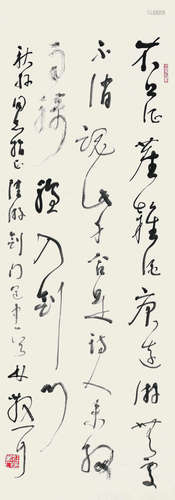 衣上征塵雜酒痕遠游無處
不消魂此身合是詩人未細
雨騎驢入劍門
同志指正陸游劍門道中林散耳